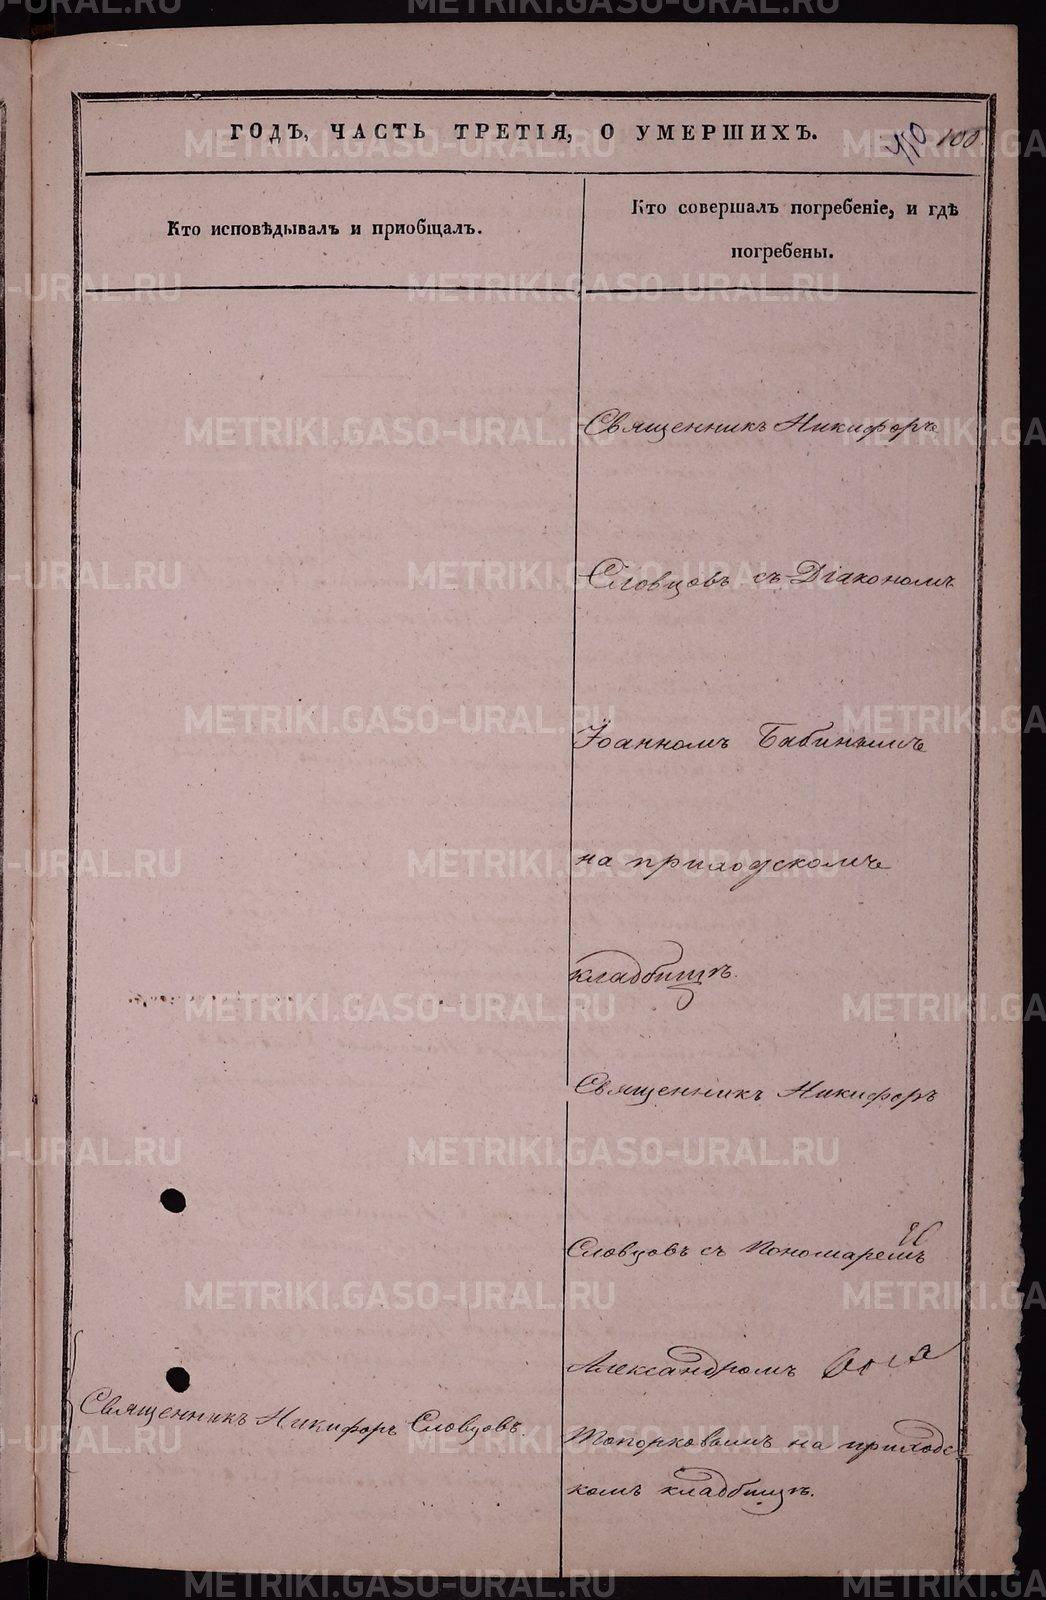 ГОДЪ, ЧАСТЬ ТРЕТІЯ, О УМЕРШИХЪ.
410 100
Кто исповѣдывалъ и пріобщалъ.
Кто совершалъ погребеніе, и гдѣ
погребены.
Священникъ Никифоръ
Словцовъ съ Діакономъ
Іоанномъ Бабинымъ
на приходскомъ
кладбищѣ.
Священникъ Никифоръ
Словцовъ съ Пономаремъ
Александромъ
Священникъ Никифоръ Словцовъ.
Топорковымъ на приходс
комъ кладбищѣ.
METRIKI.GASO-URAL.RU